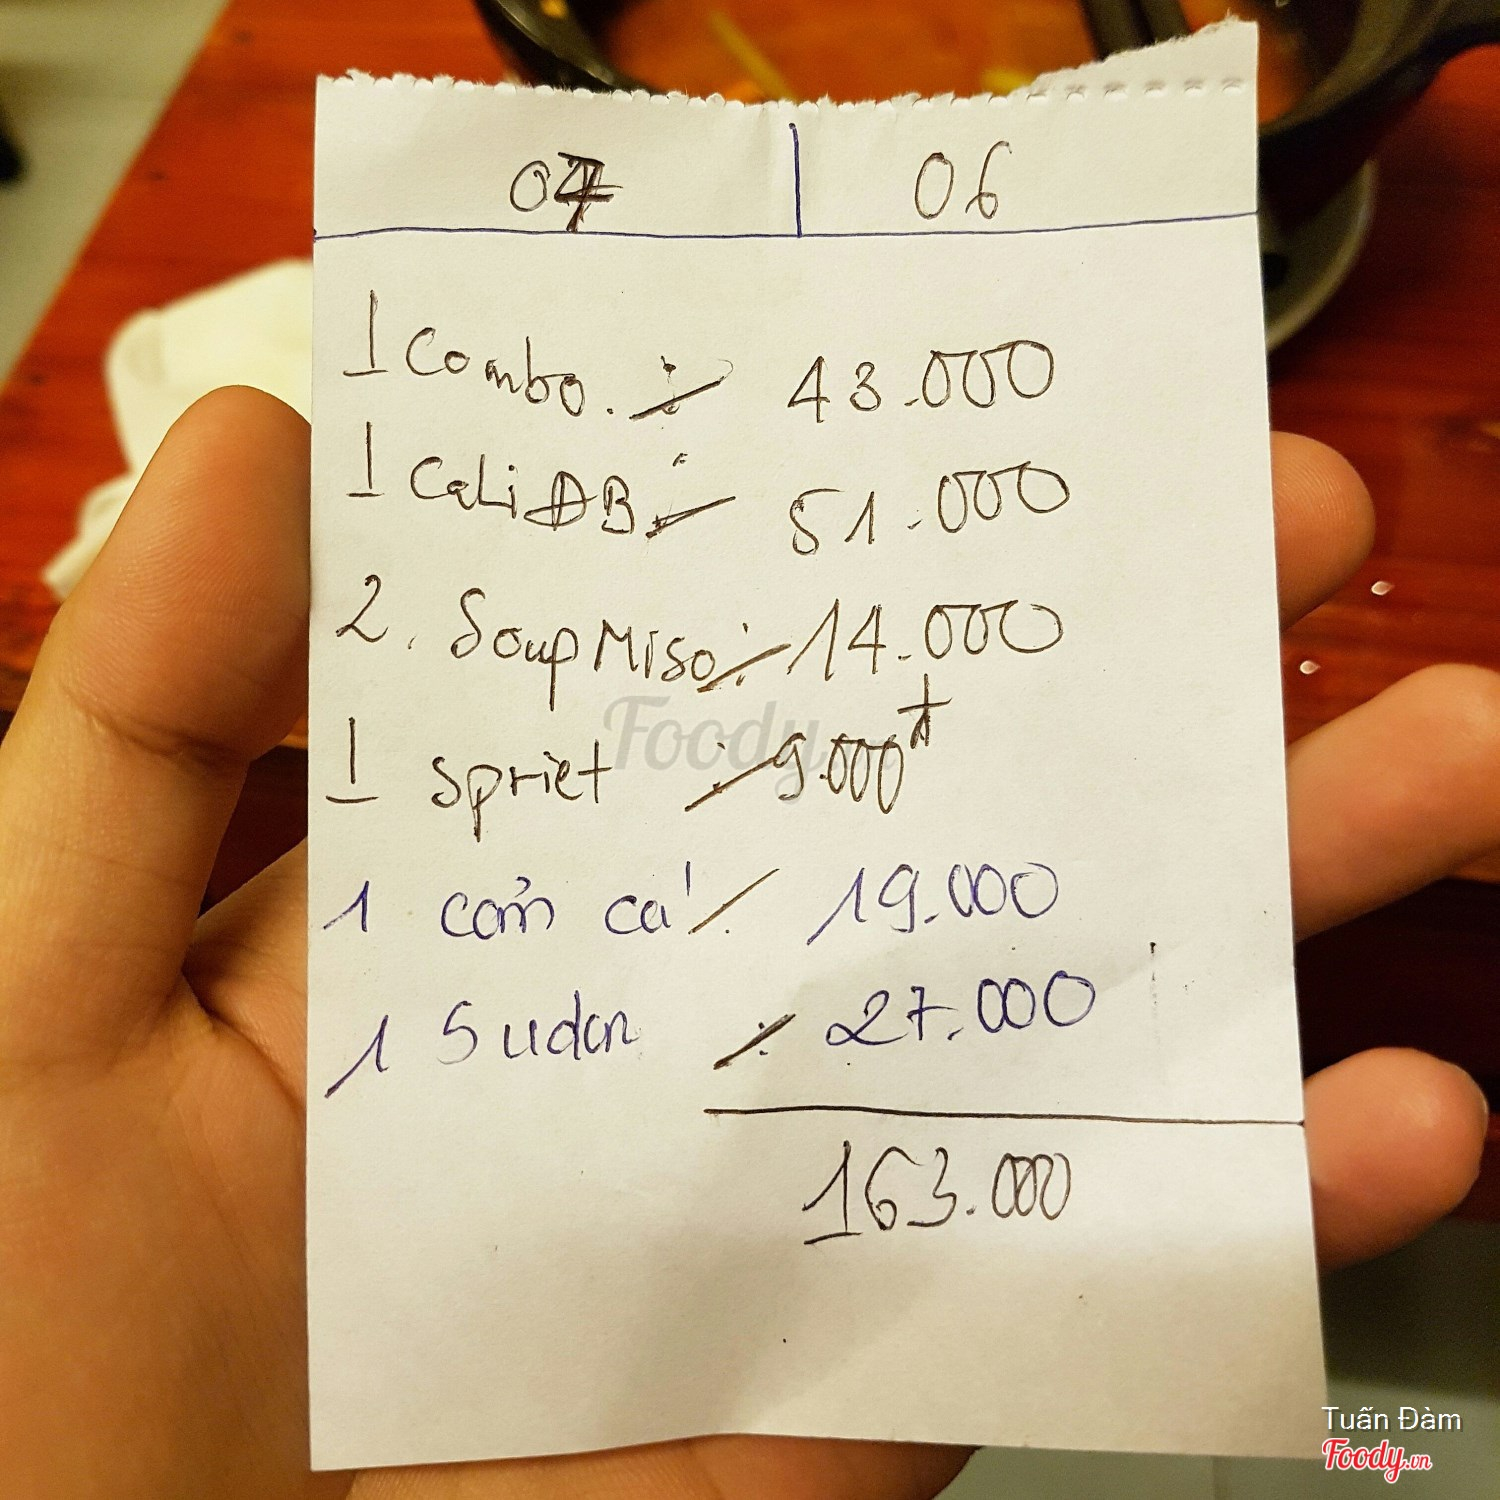 04 06
1 Combo. ⁒ 43.000
1 Cali ĐB ⁒ 51.000
2. Soup Miso ⁒ 14.000
1 spriet ⁒ 9.000
Foody.vn
1 cơm cá ⁒ 19.000
1 Sudon ⁒ 27.000
163.000
Tuấn Đàm
Foody.vn